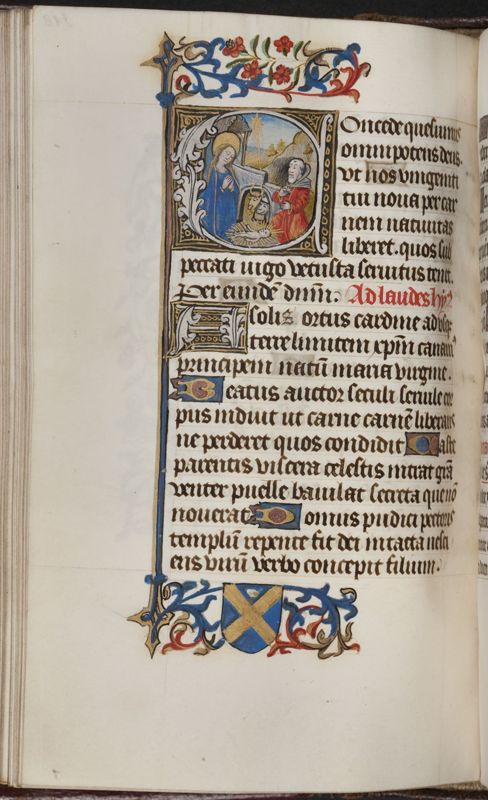 Oncede quesumus
omnipotens deus.
vt nos vnigeniti
tui noua per car
nem natiuitas
liberet. quos sub
peccati iugo vetusta seruitus tenet.
Per eundē dnm̄. Ad laudes hy
A solis ortus cardine ad vsq
terre limitem xpm̄ canam
principem natū maria virgine.
Beatus auctor seculi seruile cor
pus induit ut carne carnē liberans
ne perderet quos condidit Caste
parentis viscera celestis intrat grā
venter puelle baiulat secreta que nō
nouerat Domus pudici pectoris
templū repente fit dei intacta nesci
ens virū verbo concepit filium.